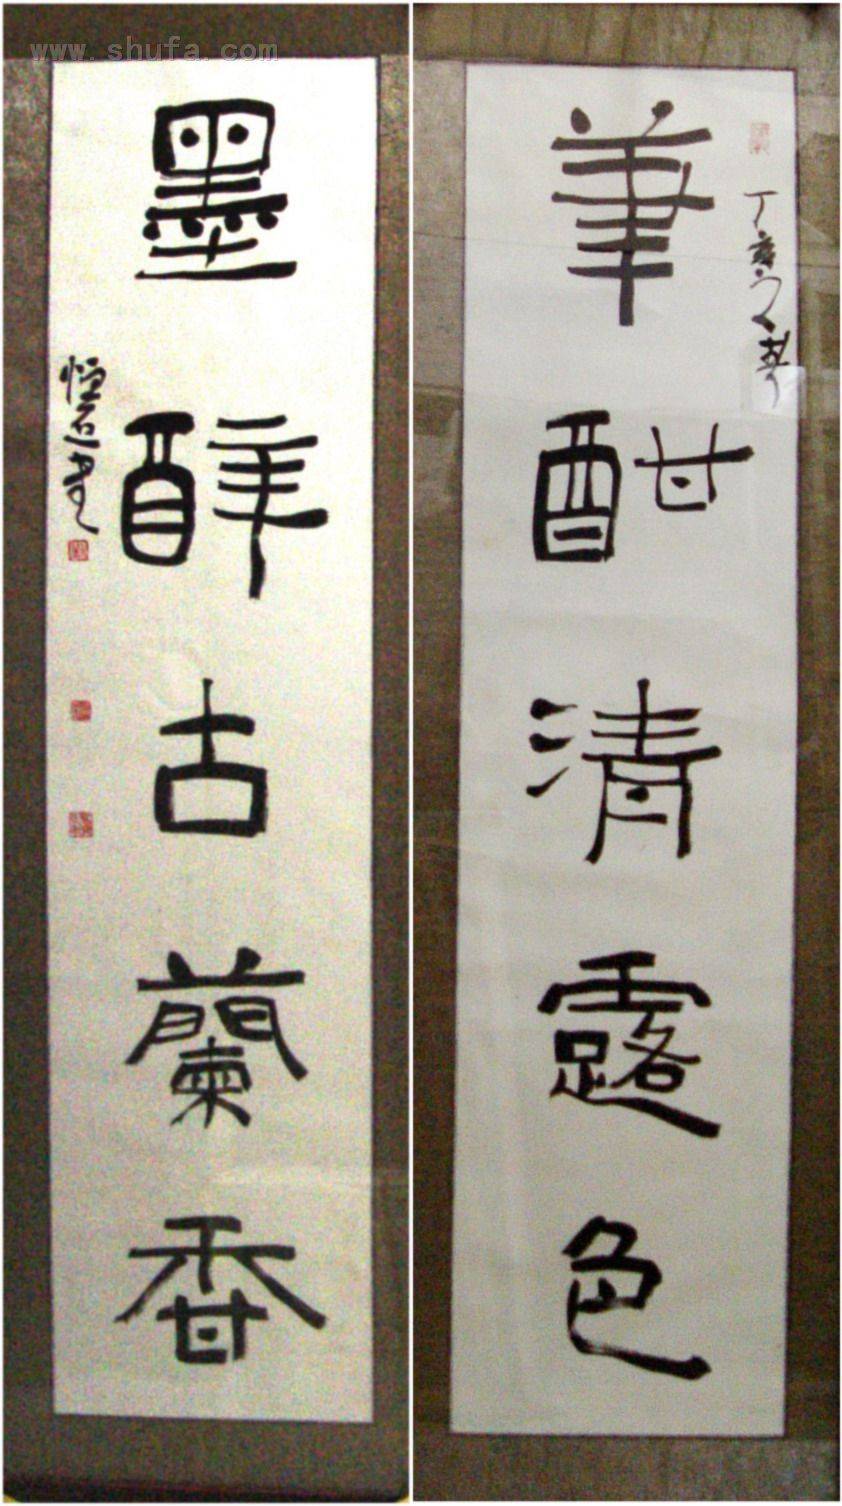 www.shufa.com
筆酣清露色
丁亥之春
墨醉古蘭香